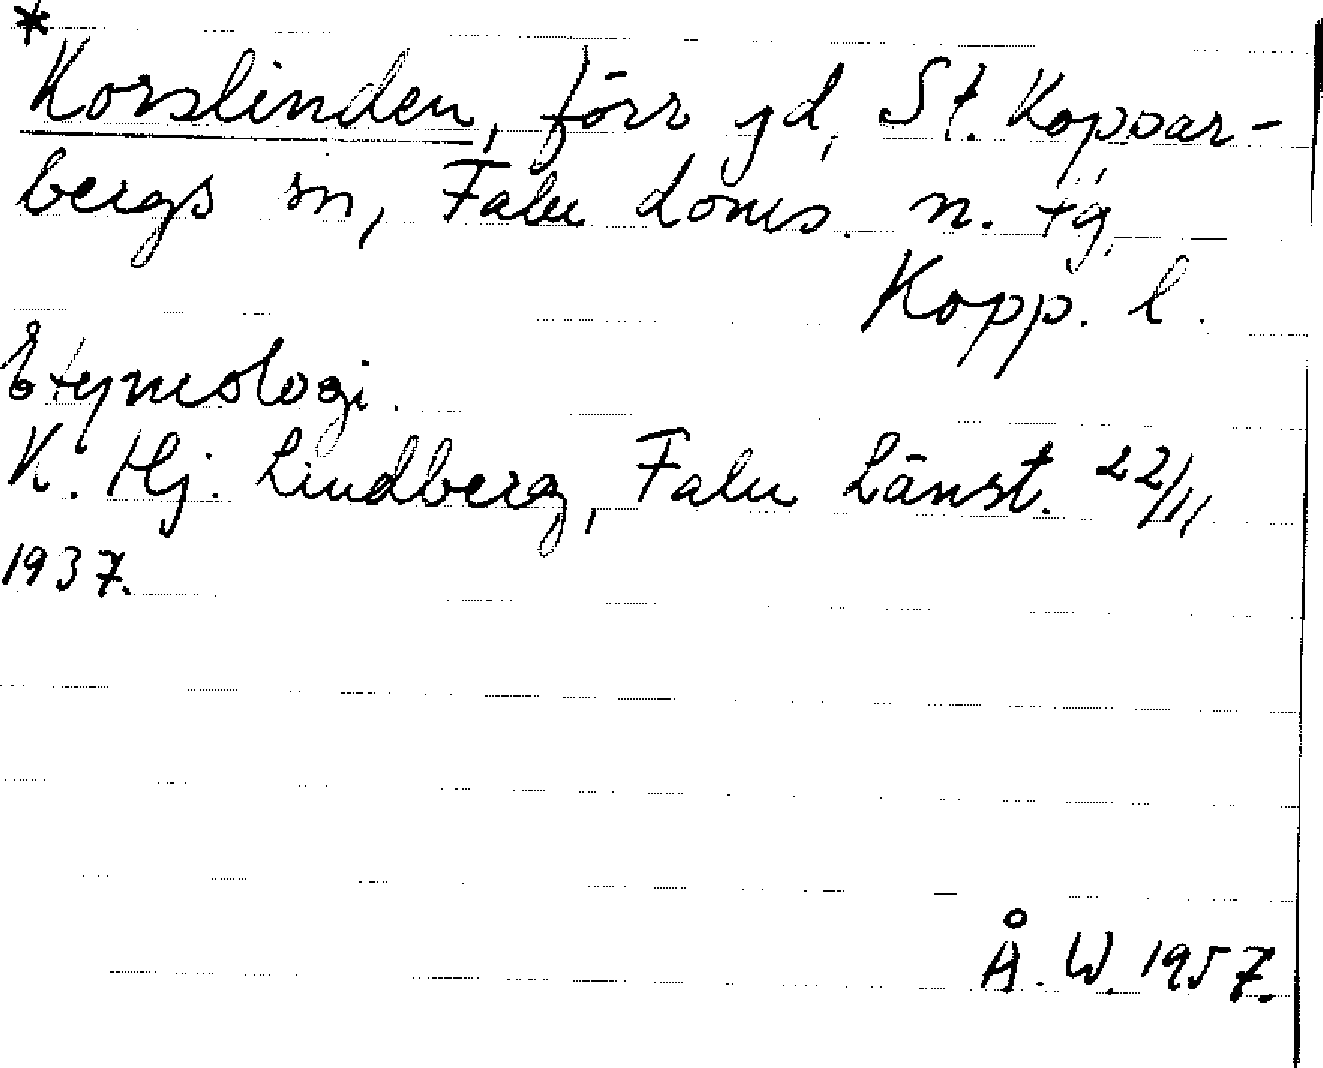 *
Korslinden, förr gd, St. Koppar-
bergs sn, Falu doms. n. tg,
Kopp. l.
Etymologi.
K. Hj. Lindberg, Falu Länst. 22/11
1937.
Å. W. 1957.